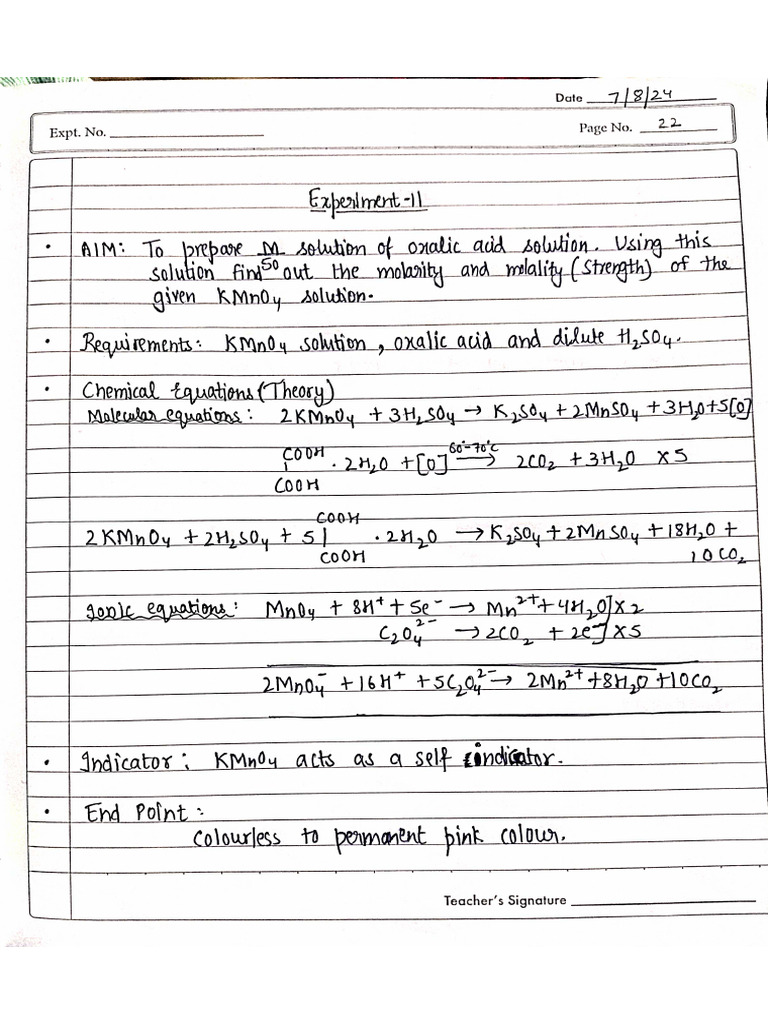 Date 7/8/24
Expt. No.
Page No. 22
Experiment-11
• AIM: To prepare M/50 solution of oxalic acid solution. Using this
solution find out the molarity and molality (Strength) of the
given KMnO₄ solution.
• Requirements: KMnO₄ solution, oxalic acid and dilute H₂SO₄.
• Chemical Equations (Theory)
Molecular equations: 2KMnO₄ + 3H₂SO₄ → K₂SO₄ + 2MnSO₄ + 3H₂O + 5[O]
COOH
| · 2H₂O + [O] 60°-70°C → 2CO₂ + 3H₂O X5
COOH
COOH
2KMnO₄ + 2H₂SO₄ + 5 | · 2H₂O → K₂SO₄ + 2MnSO₄ + 18H₂O +
COOH 10CO₂
Ionic equations: MnO₄ + 8H⁺ + 5e⁻ → Mn²⁺ + 4H₂O] X2
C₂O₄²⁻ → 2CO₂ + 2e⁻] X5
2MnO₄⁻ + 16H⁺ + 5C₂O₄²⁻ → 2Mn²⁺ + 8H₂O + 10CO₂
• Indicator: KMnO₄ acts as a self indicator.
• End Point:
Colourless to permanent pink colour.
Teacher's Signature